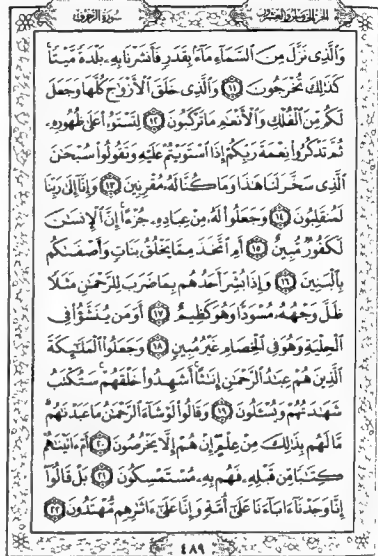 الجزء الخامس والعشرون سورة الزخرف
وَالَّذِى نَزَّلَ مِنَ السَّمَآءِ مَآءًۢ بِقَدَرٍ فَأَنشَرْنَا بِهِۦ بَلْدَةً مَّيْتًا ۚ
كَذَٰلِكَ تُخْرَجُونَ ﴿١١﴾ وَالَّذِى خَلَقَ الْأَزْوَاجَ كُلَّهَا وَجَعَلَ
لَكُم مِّنَ الْفُلْكِ وَالْأَنْعَٰمِ مَا تَرْكَبُونَ ﴿١٢﴾ لِتَسْتَوُۥا۟ عَلَىٰ ظُهُورِهِۦ
ثُمَّ تَذْكُرُوا۟ نِعْمَةَ رَبِّكُمْ إِذَا اسْتَوَيْتُمْ عَلَيْهِ وَتَقُولُوا۟ سُبْحَٰنَ
الَّذِى سَخَّرَ لَنَا هَٰذَا وَمَا كُنَّا لَهُۥ مُقْرِنِينَ ﴿١٣﴾ وَإِنَّآ إِلَىٰ رَبِّنَا
لَمُنقَلِبُونَ ﴿١٤﴾ وَجَعَلُوا۟ لَهُۥ مِنْ عِبَادِهِۦ جُزْءًا ۚ إِنَّ الْإِنسَٰنَ
لَكَفُورٌ مُّبِينٌ ﴿١٥﴾ أَمِ اتَّخَذَ مِمَّا يَخْلُقُ بَنَاتٍ وَأَصْفَىٰكُم
بِالْبَنِينَ ﴿١٦﴾ وَإِذَا بُشِّرَ أَحَدُهُم بِمَا ضَرَبَ لِلرَّحْمَٰنِ مَثَلًا
ظَلَّ وَجْهُهُۥ مُسْوَدًّا وَهُوَ كَظِيمٌ ﴿١٧﴾ أَوَمَن يُنَشَّؤُا۟ فِى
الْحِلْيَةِ وَهُوَ فِى الْخِصَامِ غَيْرُ مُبِينٍ ﴿١٨﴾ وَجَعَلُوا۟ الْمَلَٰٓئِكَةَ
الَّذِينَ هُمْ عِبَٰدُ الرَّحْمَٰنِ إِنَٰثًا ۚ أَشَهِدُوا۟ خَلْقَهُمْ ۚ سَتُكْتَبُ
شَهَٰدَتُهُمْ وَيُسْـَٔلُونَ ﴿١٩﴾ وَقَالُوا۟ لَوْ شَآءَ الرَّحْمَٰنُ مَا عَبَدْنَٰهُم ۗ
مَّا لَهُم بِذَٰلِكَ مِنْ عِلْمٍ ۖ إِنْ هُمْ إِلَّا يَخْرُصُونَ ﴿٢٠﴾ أَمْ ءَاتَيْنَٰهُمْ
كِتَٰبًا مِّن قَبْلِهِۦ فَهُم بِهِۦ مُسْتَمْسِكُونَ ﴿٢١﴾ بَلْ قَالُوٓا۟
إِنَّا وَجَدْنَآ ءَابَآءَنَا عَلَىٰٓ أُمَّةٍ وَإِنَّا عَلَىٰٓ ءَاثَٰرِهِم مُّهْتَدُونَ ﴿٢٢﴾
٤٨٩